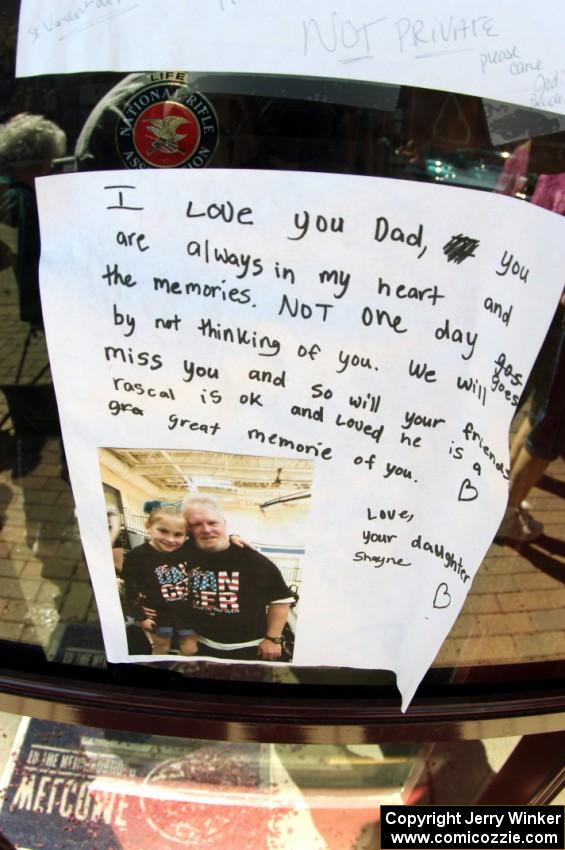 NOT PRIVATE
please
came
LIFE
NATIONAL RIFLE
I Love you Dad, you
are always in my heart and
the memories. NOT one day gos
goes
by not thinking of you. We will
miss you and so will your friends
rascal is ok and Loved he is a
gra great memorie of you.
Love,
your daughter
Shayne
TO THE NEIGHBORHOOD
WELCOME
Copyright Jerry Winker
www.comicozzie.com